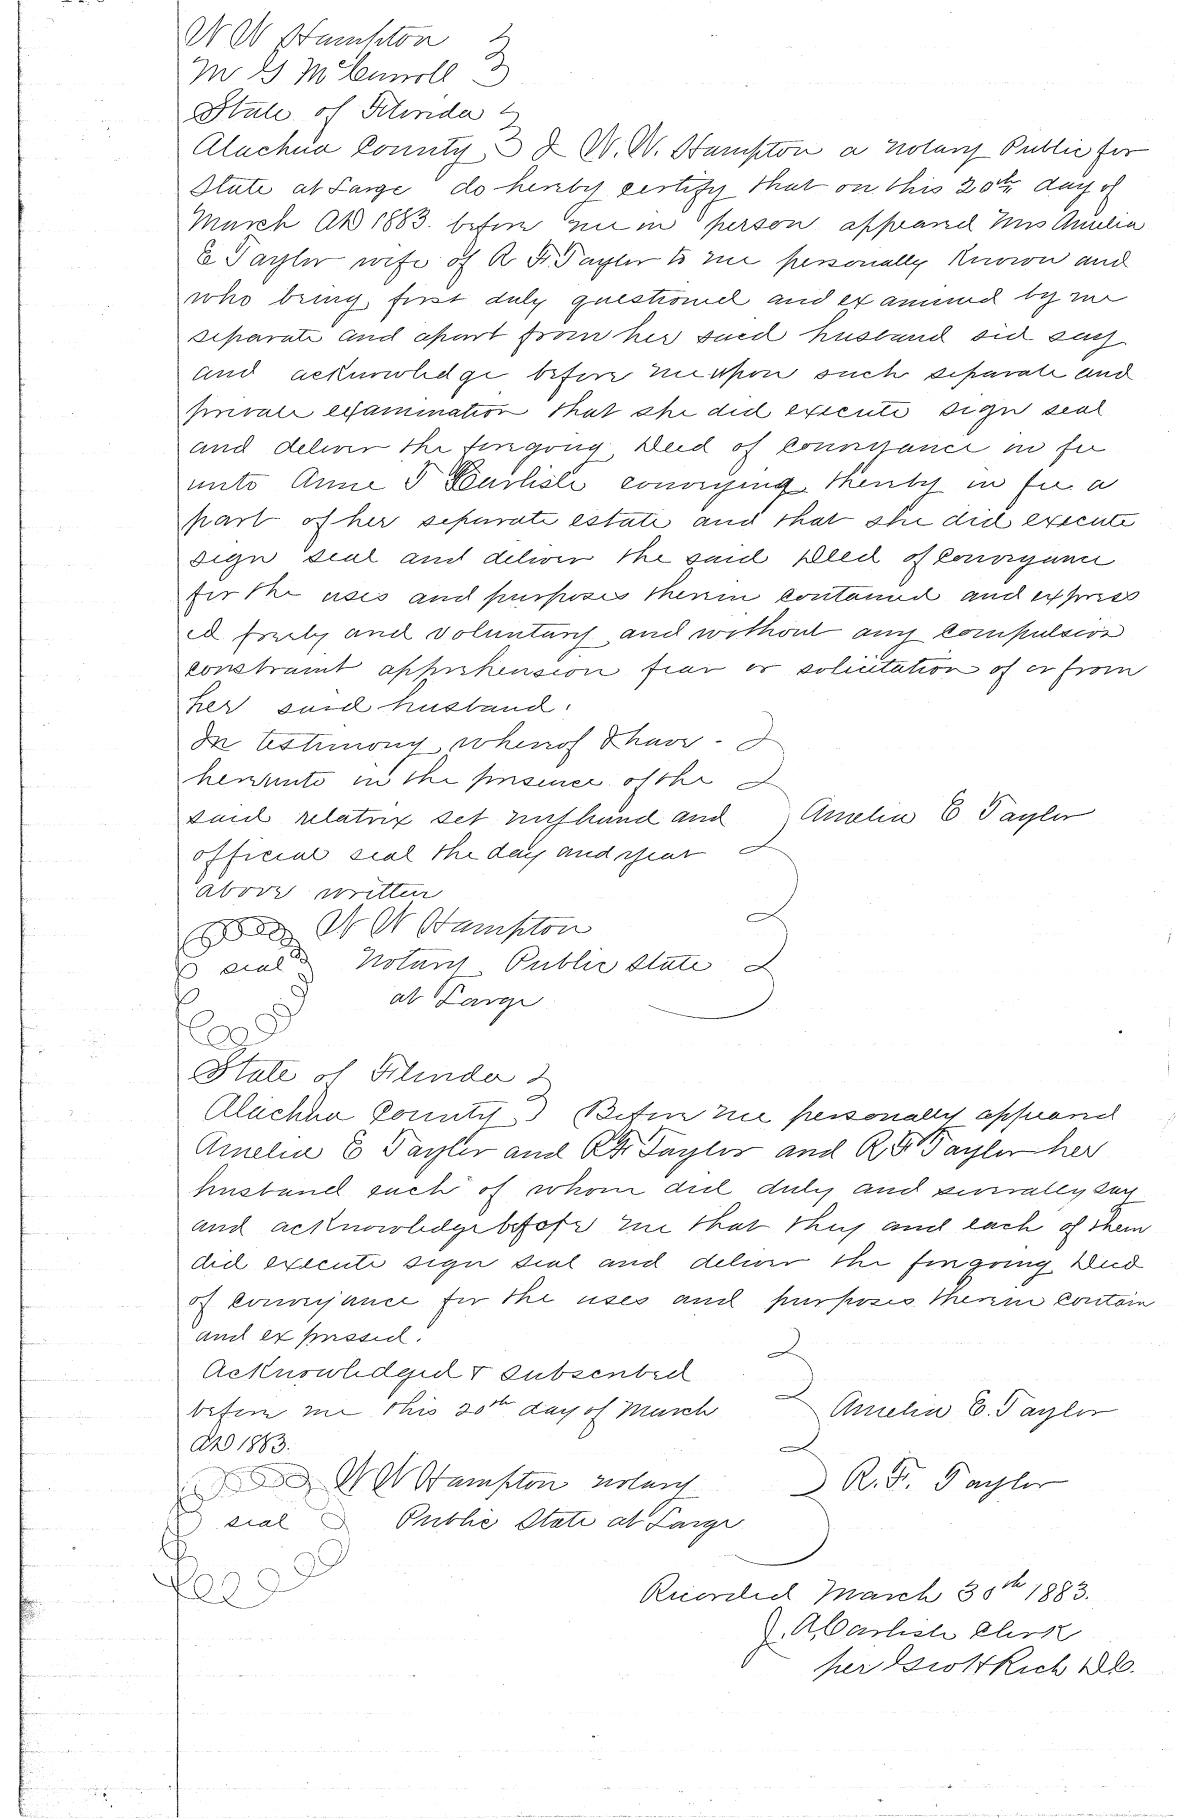 W W Hampton
M G McConnoll
State of Florida
Alachua County I W. W. Hampton a Notary Public for
State at Large do hereby certify that on this 20th day of
March AD 1883. before me in person appeared Mrs Amelia
E Taylor wife of R F. Taylor to me personally known and
who being first duly questioned and examined by me
separate and apart from her said husband did say
and acknowledge before me upon such separate and
private examination that she did execute sign seal
and deliver the foregoing Deed of Conveyance in fee
unto Anne T Carlisle conveying thereby in fee a
part of her separate estate and that she did execute
sign seal and deliver the said Deed of Conveyance
for the uses and purposes therein contained and express
ed freely and voluntary and without any compulsion
constraint apprehension fear or solicitation of or from
her said husband.
In testimony whereof I have -
hereunto in the presence of the
said relatrix set my hand and Amelia E Taylor
official seal the day and year
above written
W W Hampton
seal Notary Public State
at Large
State of Florida
Alachua County Before me personally appeared
Amelia E Taylor and R F Taylor and R F Taylor her
husband each of whom did duly and severally say
and acknowledge before me that they and each of them
did execute sign seal and deliver the foregoing Deed
of Conveyance for the uses and purposes therein contain
and expressed.
Acknowledged & subscribed
before me this 20th day of March Amelia E. Taylor
AD 1883.
W W Hampton Notary R. F. Taylor
seal Public State at Large
Recorded March 30th 1883.
J. A. Carlisle Clerk
per Rich DC.